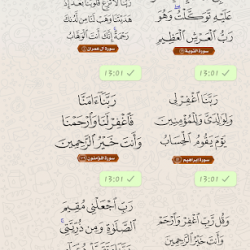 عَلَيْهِ تَوَكَّلْتُ وَهُوَ
رَبُّ الْعَرْشِ الْعَظِيمِ
سورة التوبة
13:01
رَبَّنَا لَا تُزِغْ قُلُوبَنَا بَعْدَ إِذْ
هَدَيْتَنَا وَهَبْ لَنَا مِن لَّدُنكَ
رَحْمَةً إِنَّكَ أَنتَ الْوَهَّابُ
سورة آل عمران
13:01
رَبَّنَا اغْفِرْ لِي
وَلِوَالِدَيَّ وَلِلْمُؤْمِنِينَ
يَوْمَ يَقُومُ الْحِسَابُ
سورة إبراهيم
13:01
رَبَّنَا آمَنَّا
فَاغْفِرْ لَنَا وَارْحَمْنَا
وَأَنتَ خَيْرُ الرَّاحِمِينَ
سورة المؤمنون
13:01
وَقُل رَّبِّ اغْفِرْ وَارْحَمْ
وَأَنتَ خَيْرُ الرَّاحِمِينَ
رَبِّ اجْعَلْنِي مُقِيمَ
الصَّلَاةِ وَمِن ذُرِّيَّتِي